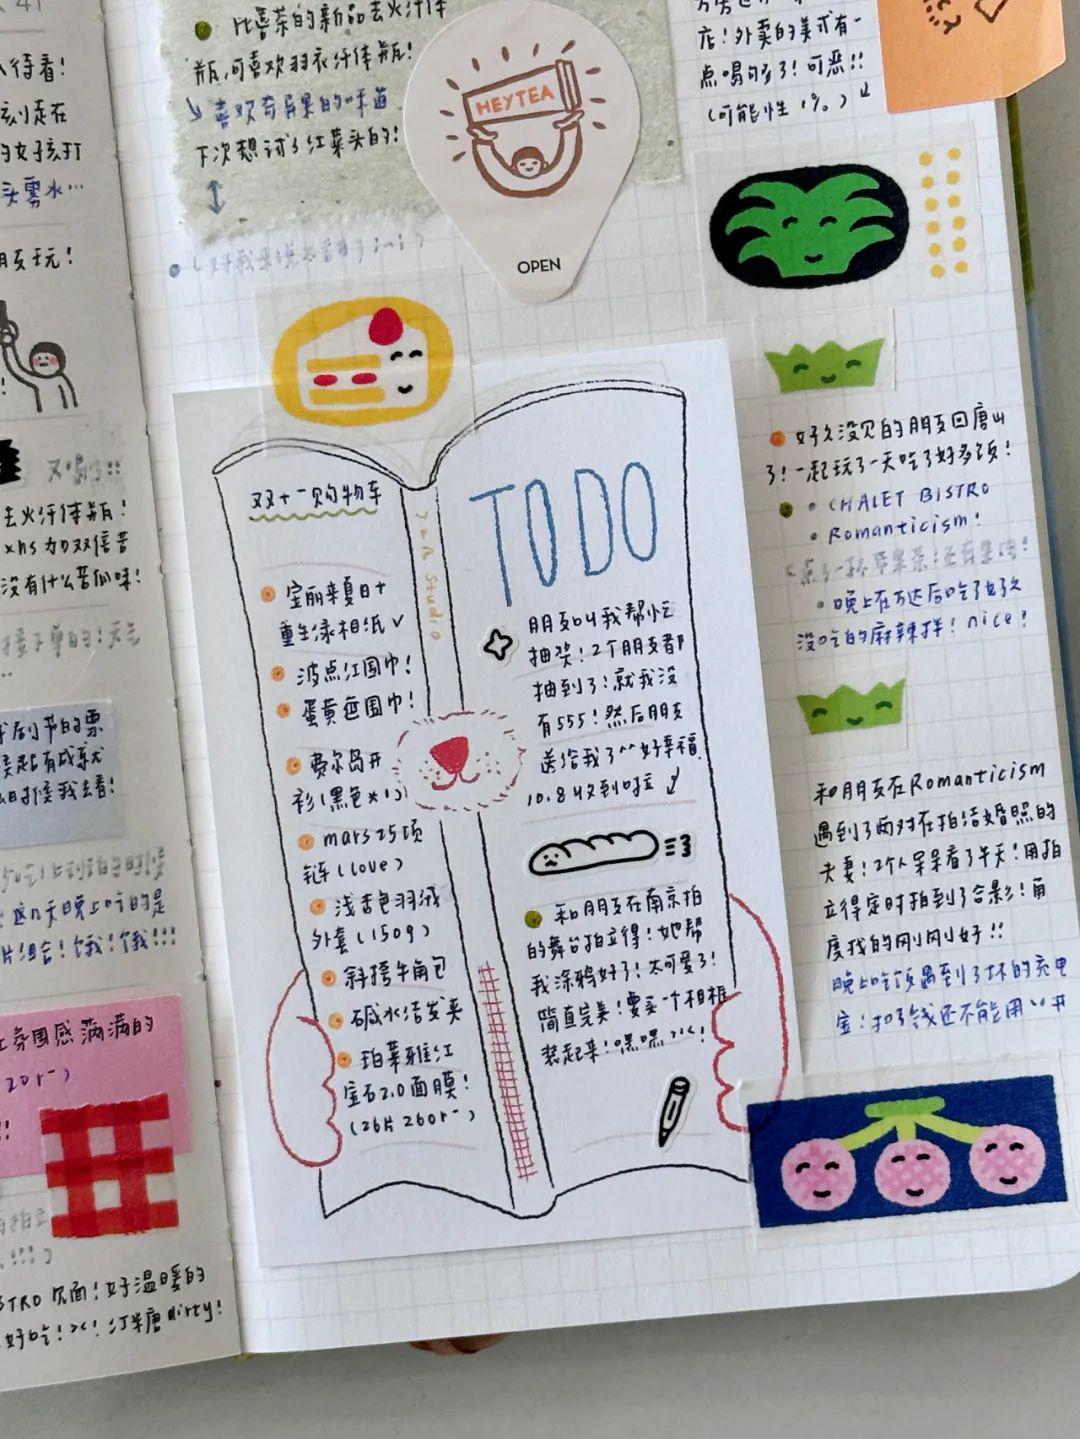 人待看！
刻走在
的女孩打
头雾水…
朋友玩！
又喝了!!
去火纤体瓶！
xhs 加双倍苦
没有什么苦瓜味！
这几天晚上吃的是
片组合！饿！饿!!!
氛围感满满的
20r-）
STRO 见面！好温暖的
好吃！><！订半糖dirty！
比喜茶的新品去火纤体
瓶，可喜欢羽衣纤体瓶！
喜欢奇异果的味道
下次想试了红菜头的！
HEYTEA
OPEN
店！外卖的美式有一
点喝的多了！可恶!!
（可能性1%。）
双十一购物车
宝丽来夏日+
重生绿相纸✓
波点红围巾！
蛋黄色围巾！
费尔岛开
衫（黑色*1）
mars 25项
链（love）
浅杏色羽绒
外套（150g）
斜挎牛角包
碱水结发夹
珀莱雅红
宝石2.0面膜！
（26片260r-）
Studio
TODO
朋友叫我帮忙
抽奖！2个朋友都
抽到了！就我没
有555！然后朋友
送给我了^^好幸福
10.8收到啦
=3
和朋友在南京拍
的舞台拍立得！她帮
我涂鸦好了！太可爱了！
简直完美！要买一个相框
装起来！嘿嘿><！
好久没见的朋友回唐山
了！一起玩了一天吃了好多饭！
CHALET BISTRO
Romanticism！
晚上在万达后吃了好久
没吃的麻辣拌！nice！
和朋友在Romanticism
遇到了两对在拍结婚照的
夫妻！2个人呆呆看了半天！用拍
立得定时拍到了合影！角
度找的刚刚好!!
晚上吃饭遇到了坏的充电
宝！扣了钱还不能用